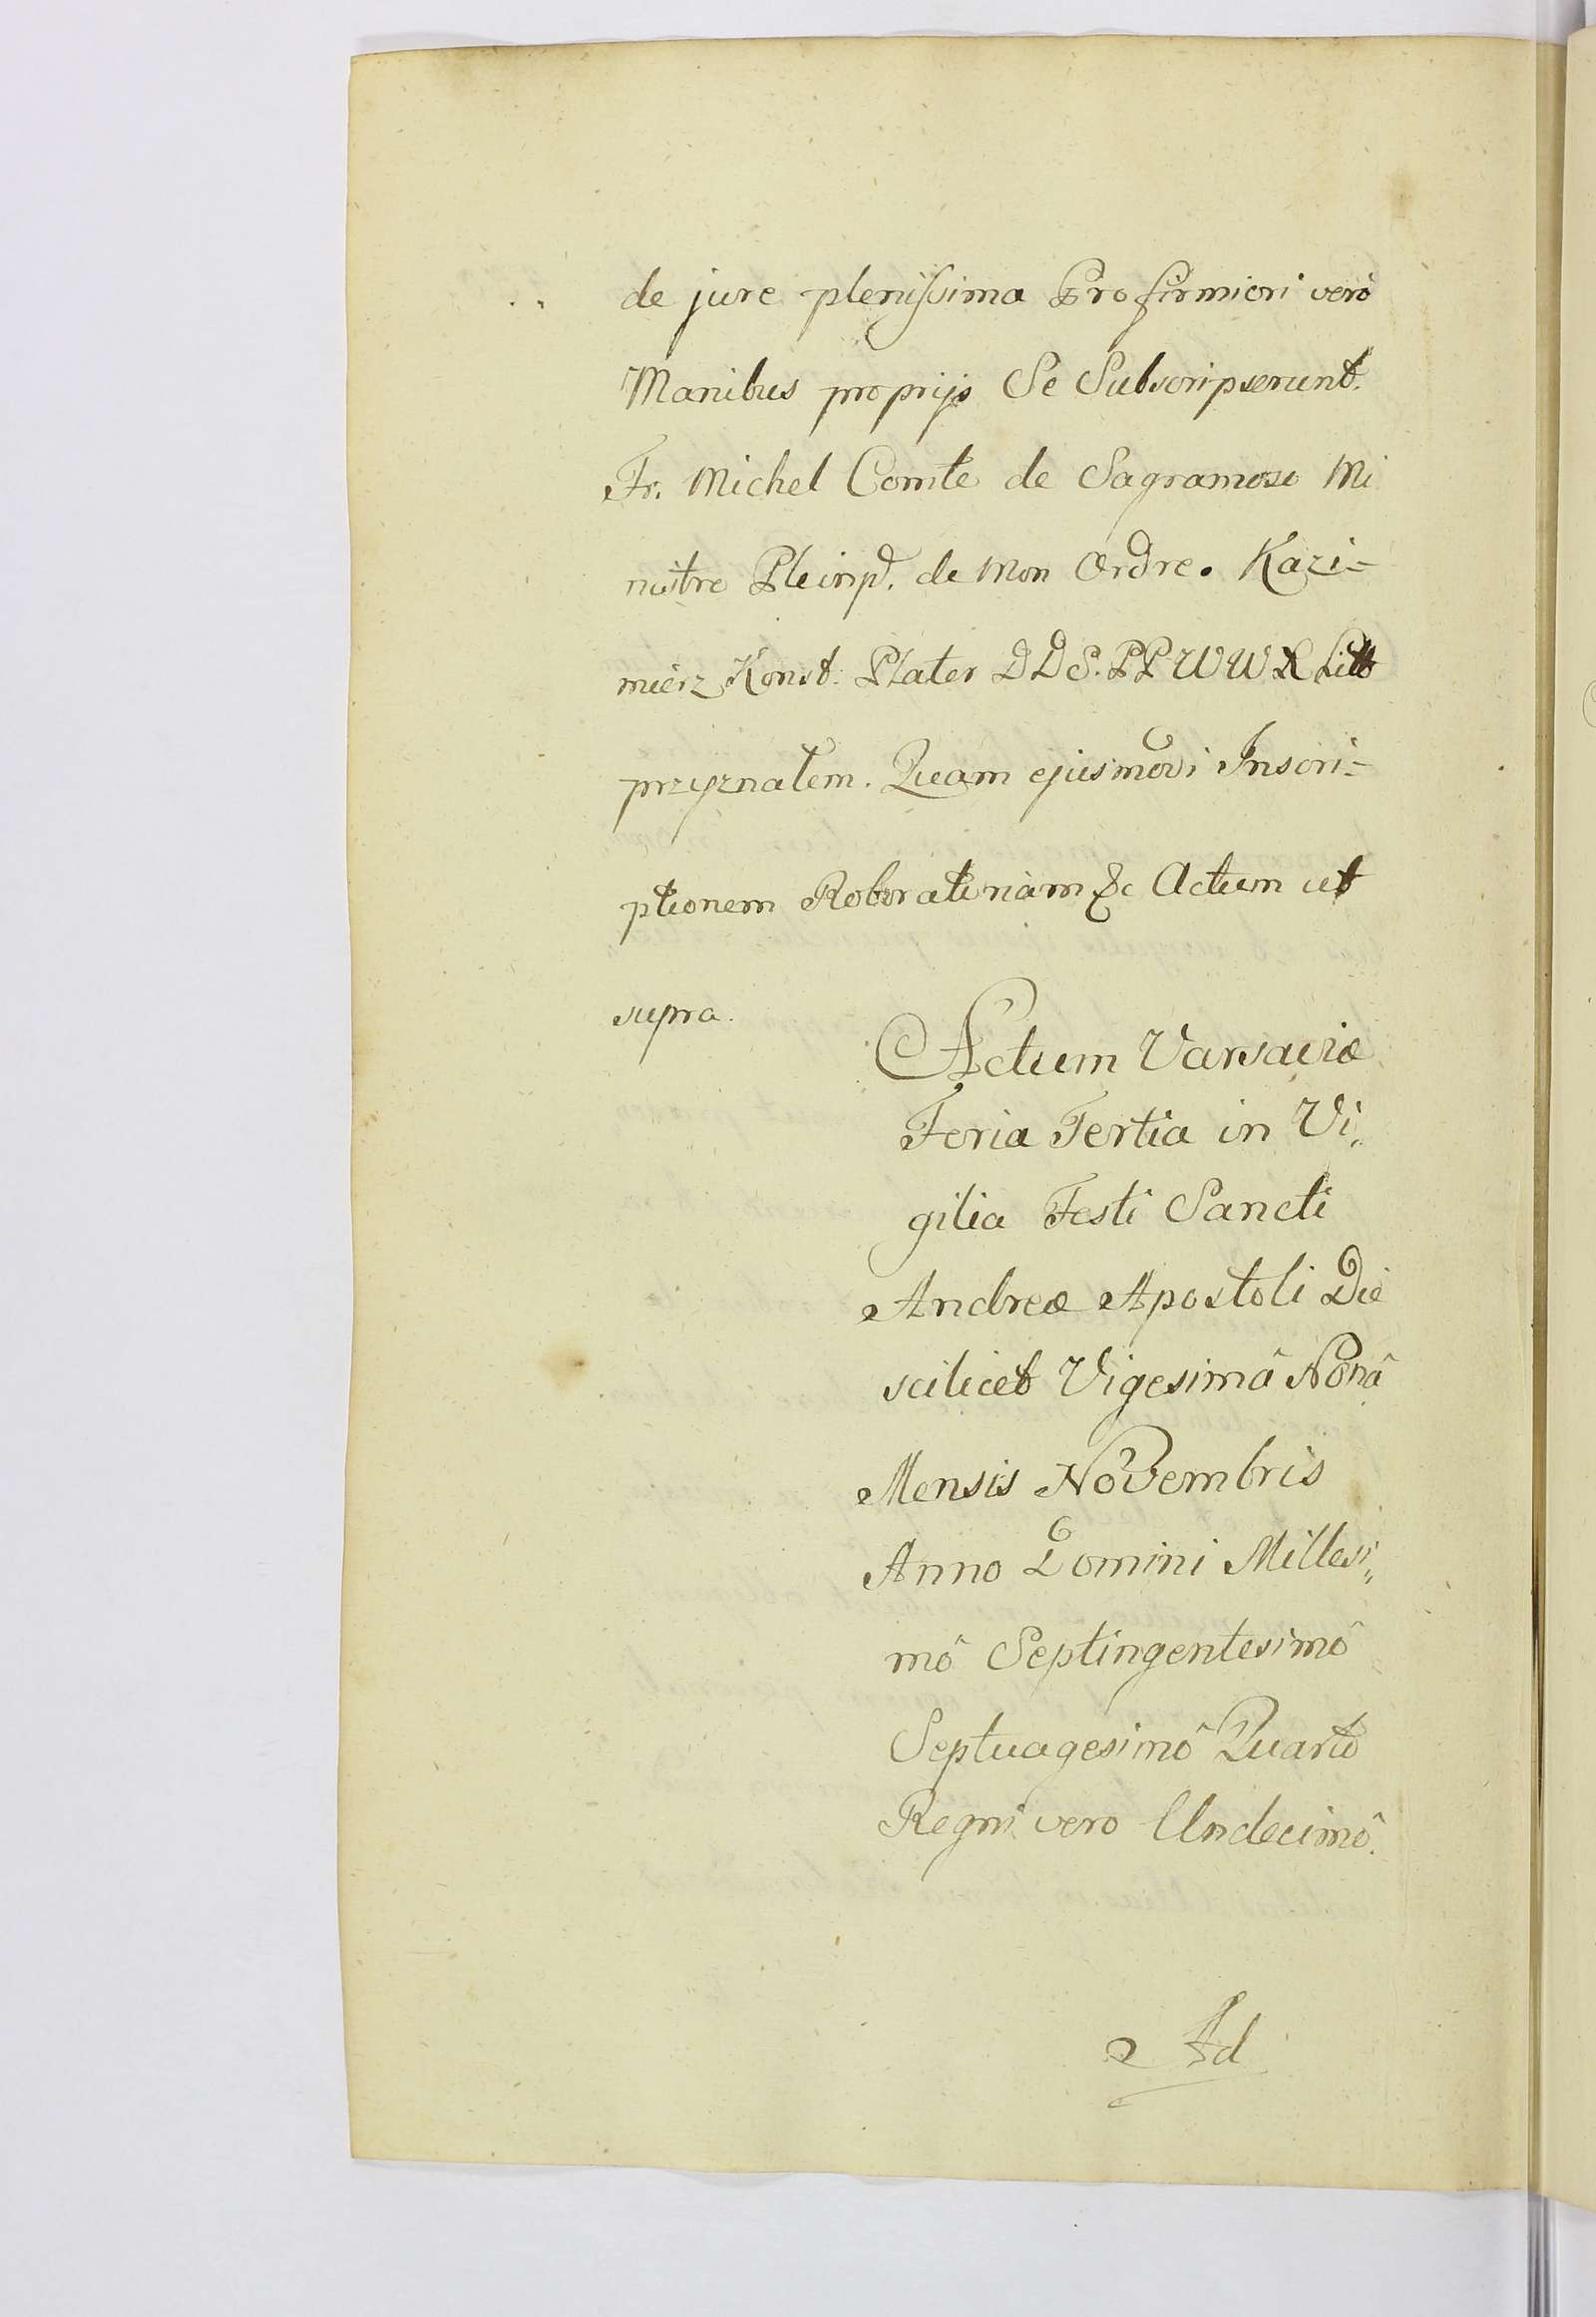 de jure plenissima Pro firmiori vero
Manibus proprijs Se Subscripserunt.
Fr. Michel Comte de Sagramoso Mi
nistre Pleinp. de Mon Ordre. Kazi=
mierz Konst. Plater D D S. P P W W X Litt
przyznałem. Quam ejusmodi Inscri=
ptionem Roboratoriam &c Actum ut
supra.
Actum Varsaviæ
Feria Tertia in Vi„
gilia Festi Sancti
Andreæ Apostoli Die
scilicet Vigesimâ Nonâ
Mensis Novembris
Anno Domini Millesi„
mô Septingentesimô
Septuagesimô Quarto
Regni vero Undecimô.
Ad